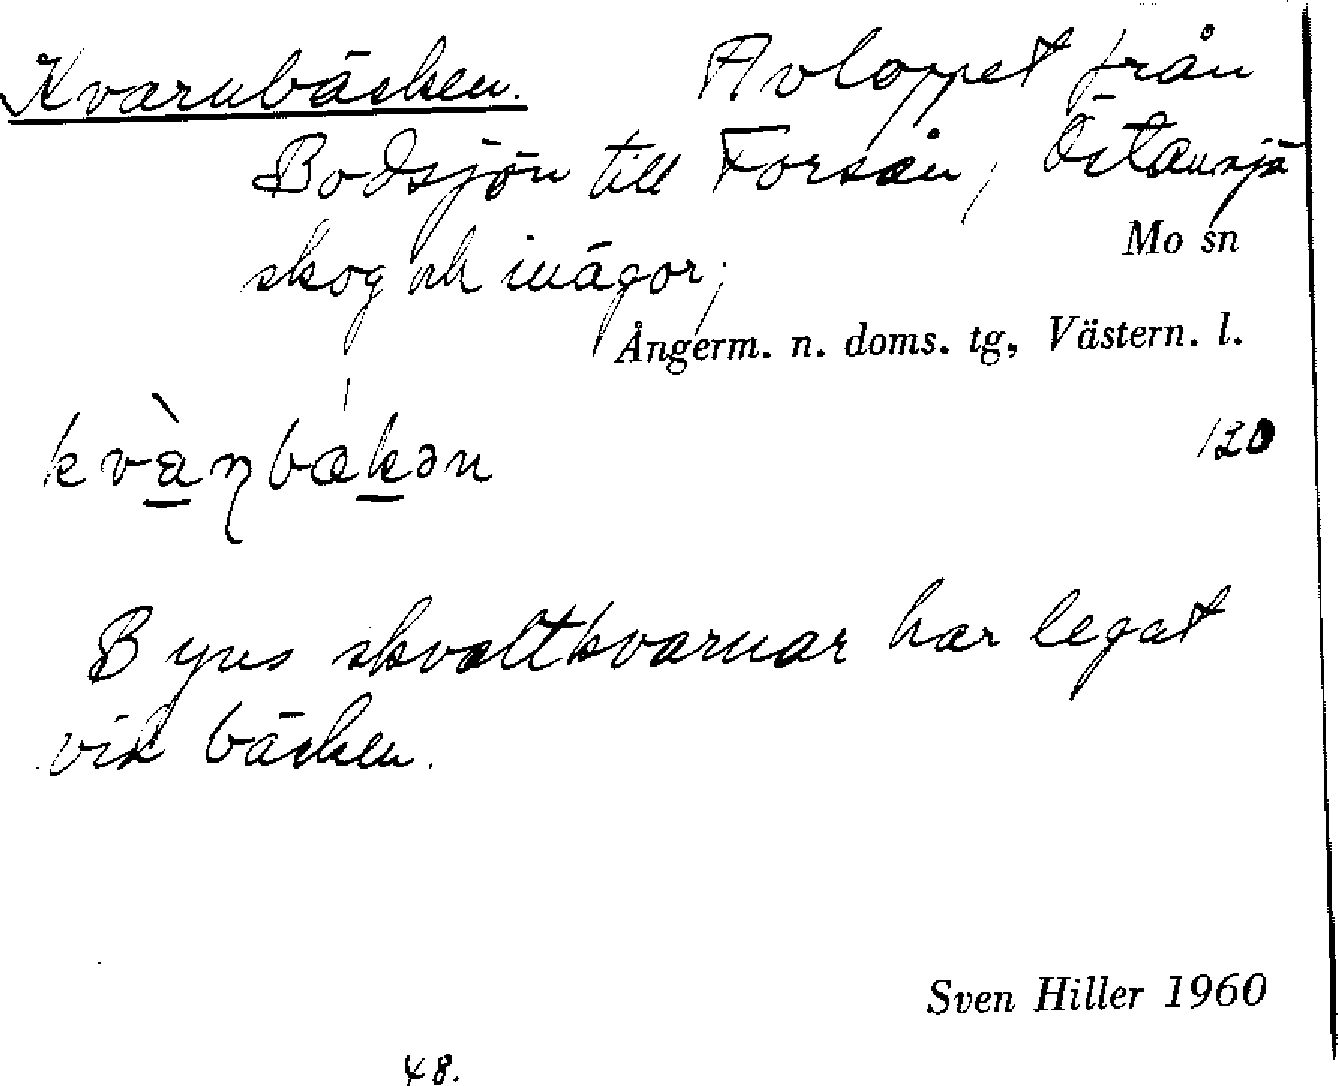 Kvarnbäcken. Avloppet från
Bodsjön till Forsån, Östansjö
skog och inägor;
Mo sn
Ångerm. n. doms. tg, Västern. l.
120
kvàɳbækən
Byns skvaltkvarnar har legat
vid bäcken.
Sven Hiller 1960
48.